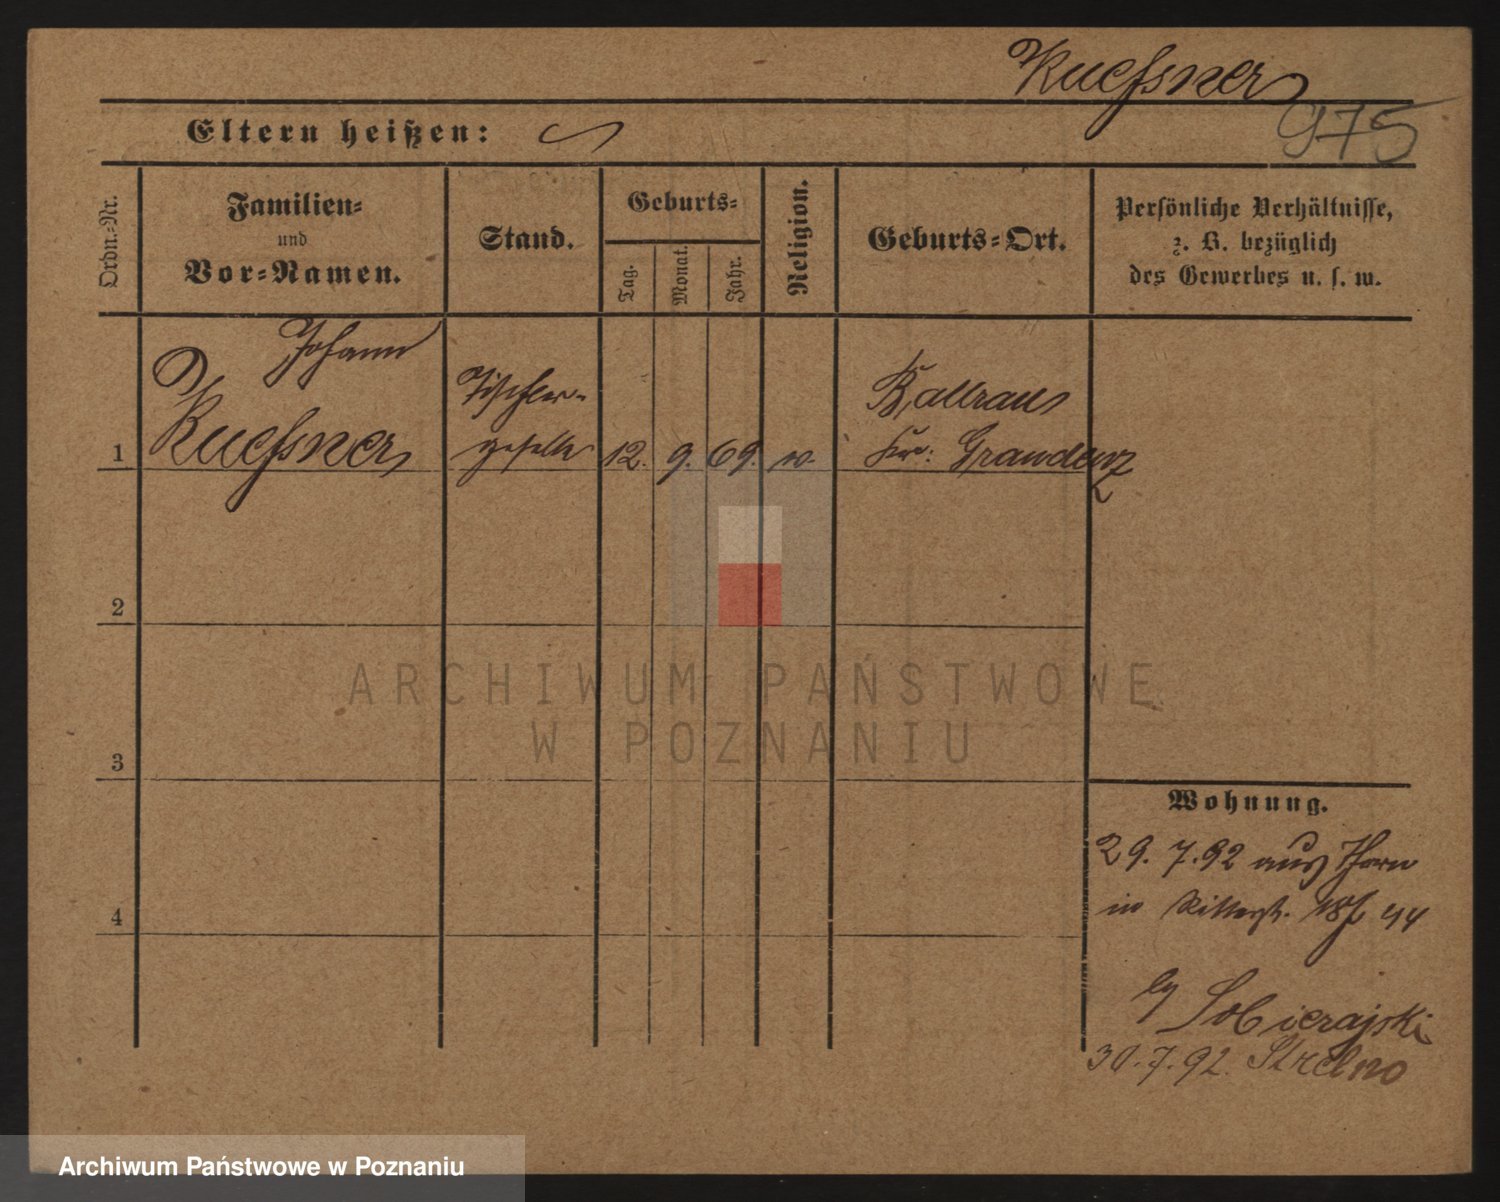 Kuessner
975
Eltern heißen:
Ordn.-Nr.
Familien-
und
Vor-Namen.
Stand.
Geburts-
Tag.
Monat.
Jahr.
Religion.
Geburts-Ort.
Persönliche Verhältnisse,
z. B. bezüglich
des Gewerbes u. s. w.
Johann
Kuessner
Tischler-
geselle
1
12. 9. 69.
Graudenz
2
3
4
Wohnung.
29. 7. 92 aus Thorn
in Ritterstr. 44
Sobierajski
30. 7. 92. Strelno
ARCHIWUM PAŃSTWOWE
W POZNANIU
Archiwum Państwowe w Poznaniu